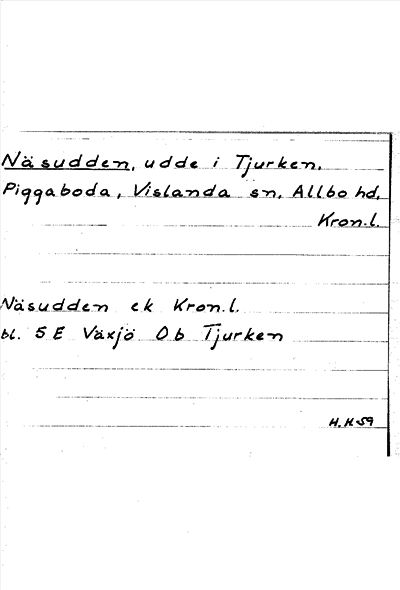 Näsudden, udde i Tjurken,
Piggaboda, Vislanda sn, Allbo hd,
Kron.l.
Näsudden ek Kron.l.
bl. 5 E Växjö 0b Tjurken
H.H.59